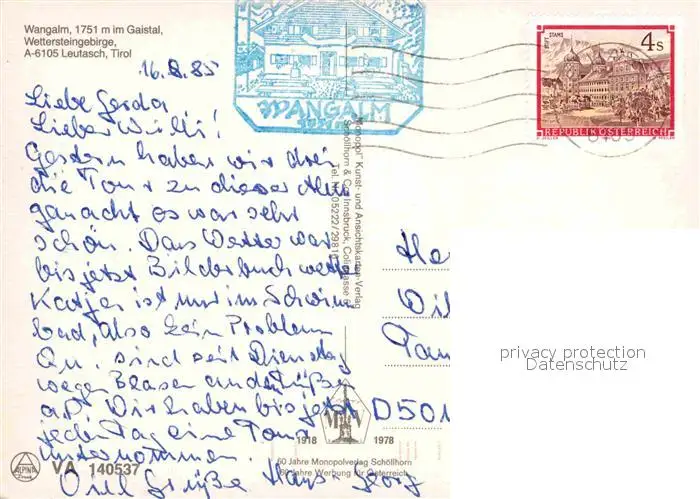 Wangalm, 1751 m im Gaistal,
Wettersteingebirge,
A-6105 Leutasch, Tirol
16.8.85
Liebe Gerda
Lieber Willi!
Gestern haben wir drei
die Tour zu dieser Alm
gemacht es war sehr
schön. Das Wetter war
bis jetzt Bilderbuchwetter
Katja ist nur im Schwimm
bad, also kein Problem
Qu. sind seit Dienstag
wegen Blasen an den Füßen
a.P. Wir haben bis jetzt
jeden Tag eine Tour
unternommen.
Viel Grüße Hans-Georg
WANGALM
STIFT STAMS
4 s
REPUBLIK ÖSTERREICH
Monopol" Kunst- und Ansichtskarten-Verlag
Schöllhorn & Co., Innsbruck,
Tel. 05222/2981
He
Wil
D 501
1918 1978
60 Jahre Monopolverlag Schöllhorn
60 Jahre Werbung für Österreich
ALPINA
VA 140537
privacy protection
Datenschutz